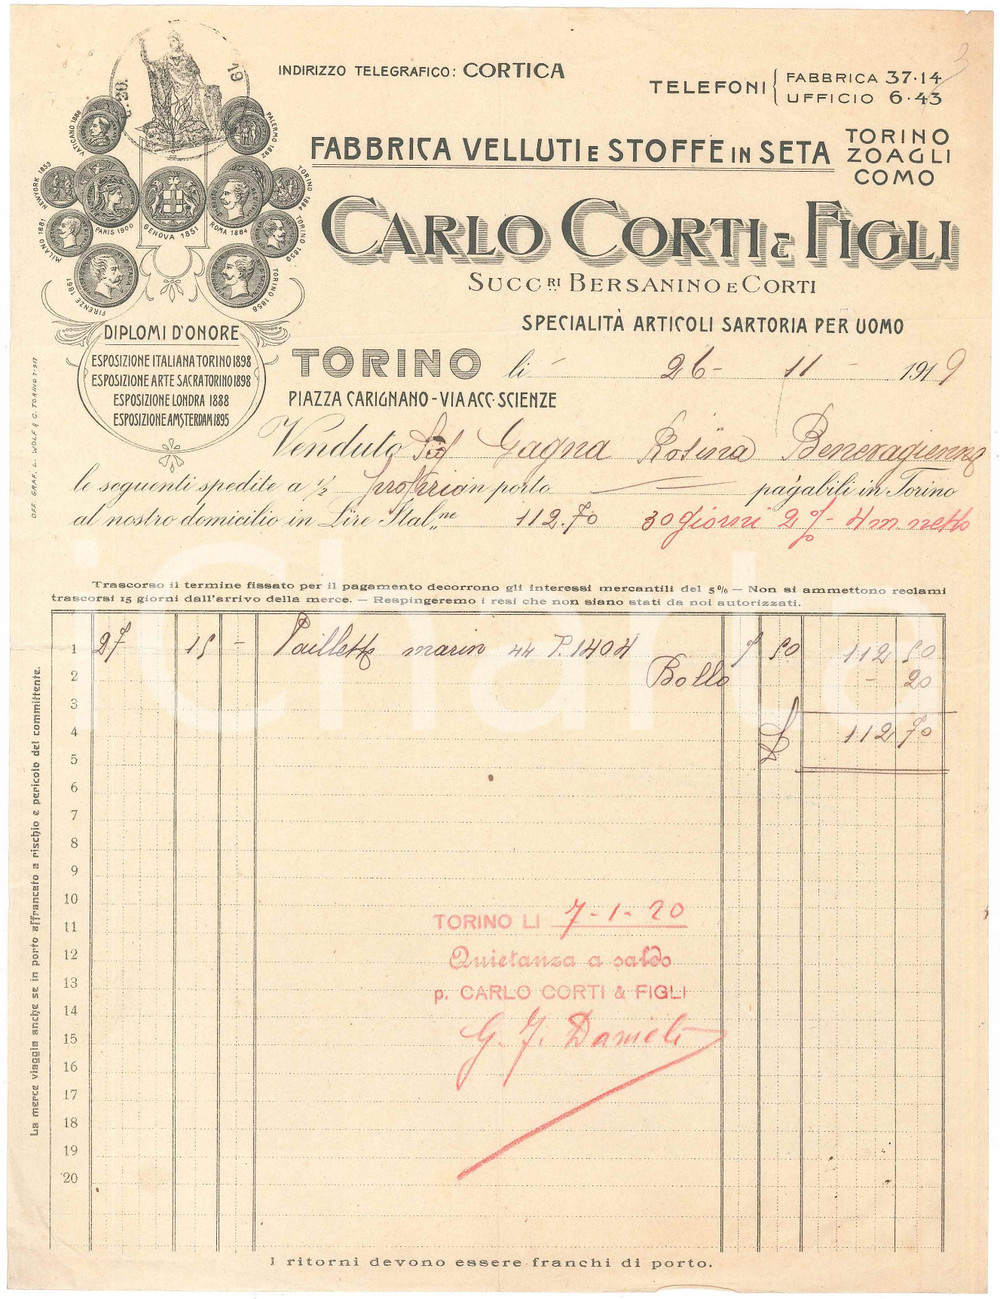 INDIRIZZO TELEGRAFICO: CORTICA
TELEFONI { FABBRICA 37·14
UFFICIO 6·43
FABBRICA VELLUTI E STOFFE IN SETA
TORINO
ZOAGLI
COMO
CARLO CORTI & FIGLI
SUCC.RI BERSANINO E CORTI
SPECIALITÀ ARTICOLI SARTORIA PER UOMO
VATICANO 1888
PALERMO 1892
NEWYORK 1853
TORINO 1884
PARIS 1900
GENOVA 1851
ROMA 1884
MILANO 1881
TORINO 1850
FIRENZE 1861
TORINO 1858
DIPLOMI D'ONORE
ESPOSIZIONE ITALIANA TORINO 1898
ESPOSIZIONE ARTE SACRA TORINO 1898
ESPOSIZIONE LONDRA 1888
ESPOSIZIONE AMSTERDAM 1895
OFF. GRAF. L. WOLF & C. TORINO
TORINO li 26 - 11 - 1919
PIAZZA CARIGNANO - VIA ACC. SCIENZE
Venduto Sig Gagna Rosina Benevagienna
le seguenti spedite a 1/2 proprio in porto pagabili in Torino
al nostro domicilio in Lire Ital.ne 112.70 30 giorni 2% - 4 m. netto
Trascorso il termine fissato per il pagamento decorrono gli interessi mercantili del 5% — Non si ammettono reclami
trascorsi 15 giorni dall'arrivo della merce. — Respingeremo i resi che non siano stati da noi autorizzati.
1 27 15 - Paillette marin 44 P. 1404 7 50 112 50
2 Bollo - 20
3
4 £ 112 70
5
6
7
8
9
10
11 TORINO LI 7-1-20
12 Quietanza a saldo
13 p. CARLO CORTI & FIGLI
14
15 G. J. Danieli
16
17
18
19
20
La merce viaggia anche se in porto affrancato a rischio e pericolo del committente.
I ritorni devono essere franchi di porto.
iCharta